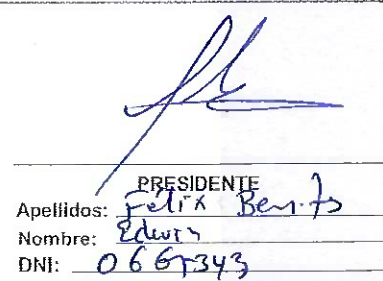 PRESIDENTE
Apellidos: Félix Benito
Nombre: Edwin
DNI: